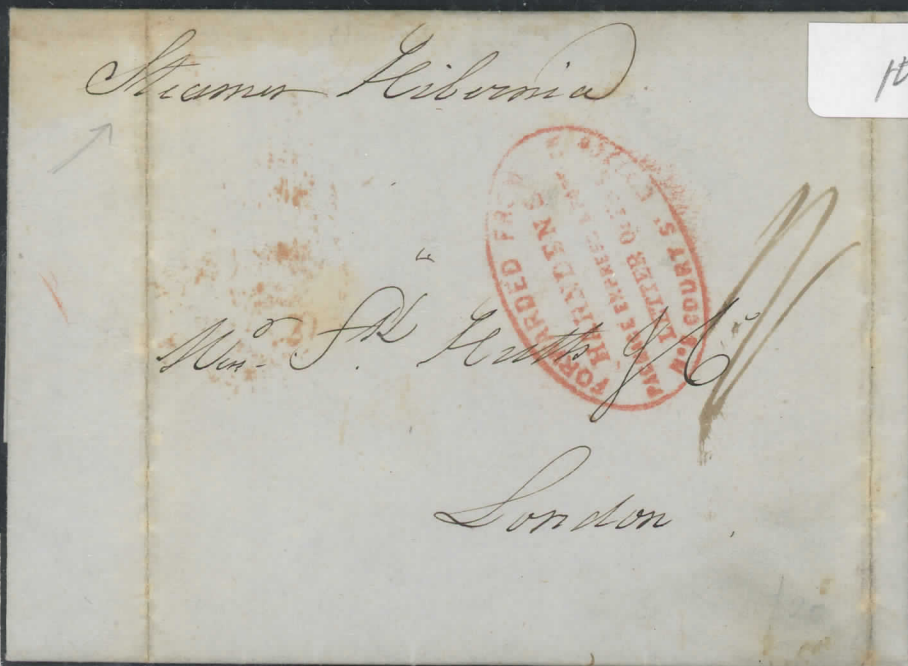 Steamer Hibernia
FORWARDED FROM
HARNDEN'S
PACKAGE EXPRESS &
LETTER OFFICE
COURT St.
Messrs. Fk Huth & Co
London